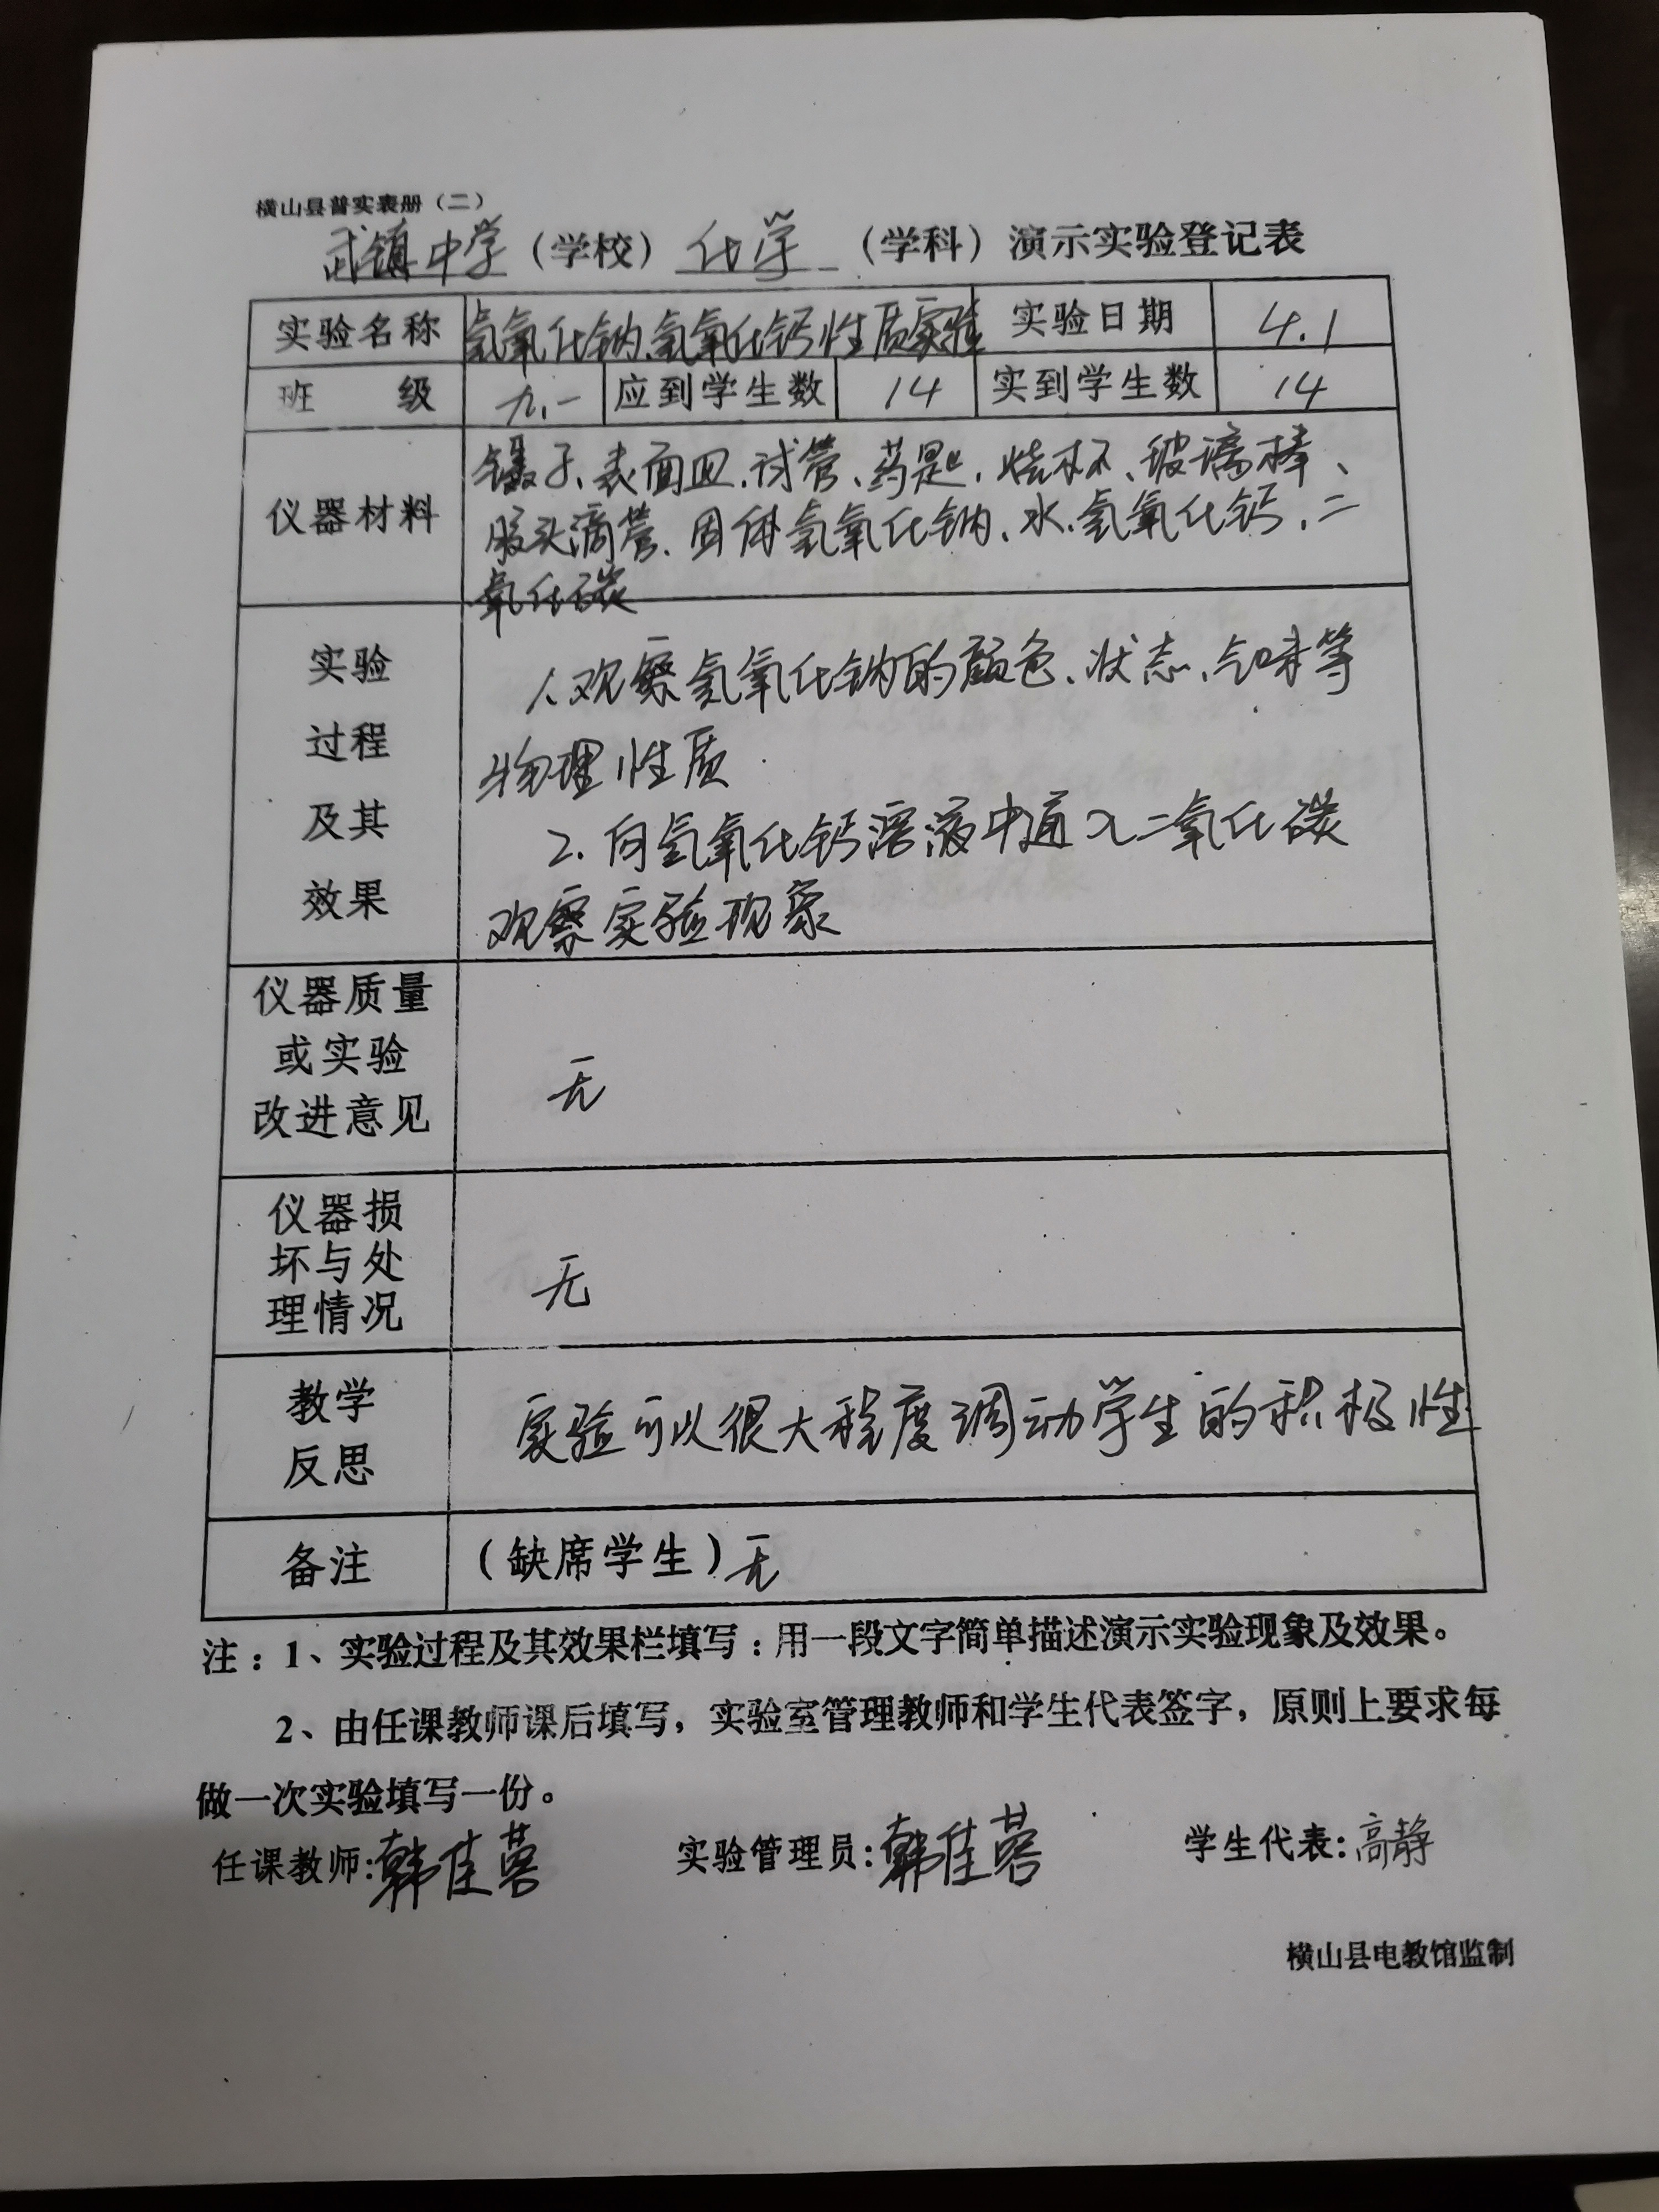 横山县普实表册（二）
武镇中学（学校）化学（学科）演示实验登记表
实验名称 氢氧化钠、氢氧化钙性质实验 实验日期 4.1
班级 九.一 应到学生数 14 实到学生数 14
镊子、表面皿、试管、药匙、烧杯、玻璃棒、
仪器材料 胶头滴管、固体氢氧化钠、水、氢氧化钙、二
氧化碳
实验
过程
及其
效果
1、观察氢氧化钠的颜色、状态、气味等
物理性质.
2. 向氢氧化钙溶液中通入二氧化碳
观察实验现象
仪器质量
或实验
改进意见
无
仪器损
坏与处
理情况
无
教学
反思
实验可以很大程度调动学生的积极性
备注 （缺席学生）无
注：1、实验过程及其效果栏填写：用一段文字简单描述演示实验现象及效果。
2、由任课教师课后填写，实验室管理教师和学生代表签字，原则上要求每
做一次实验填写一份。
任课教师:韩佳蓉 实验管理员:韩佳蓉 学生代表:高静
横山县电教馆监制